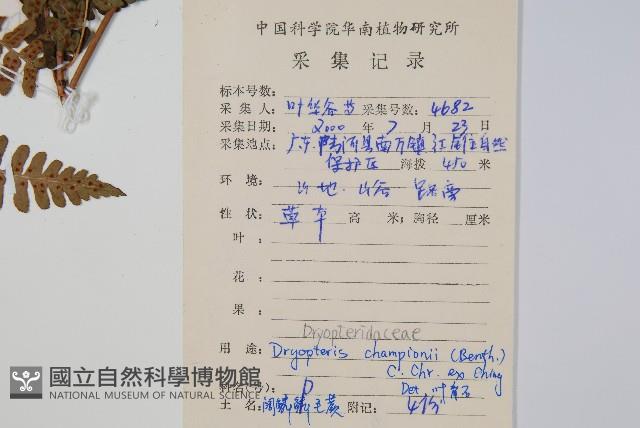 中国科学院华南植物研究所
采集记录
标本号数:
采集人: 叶华谷 采集号数: 4682
采集日期: 2000 年 7 月 23 日
采集地点: 广东 陆河县南万镇 自然
保护区 海拔 450 米
环境: 山地. 山谷
性状: 草本 高 米; 胸径 厘米
叶:
花
果:
Dryopteridaceae
用途: Dryopteris championii (Benth.)
C. Chr. ex Ching
Det.
土名: 阔鳞鳞毛蕨 附记:
國立自然科學博物館
NATIONAL MUSEUM OF NATURAL SCIENCE